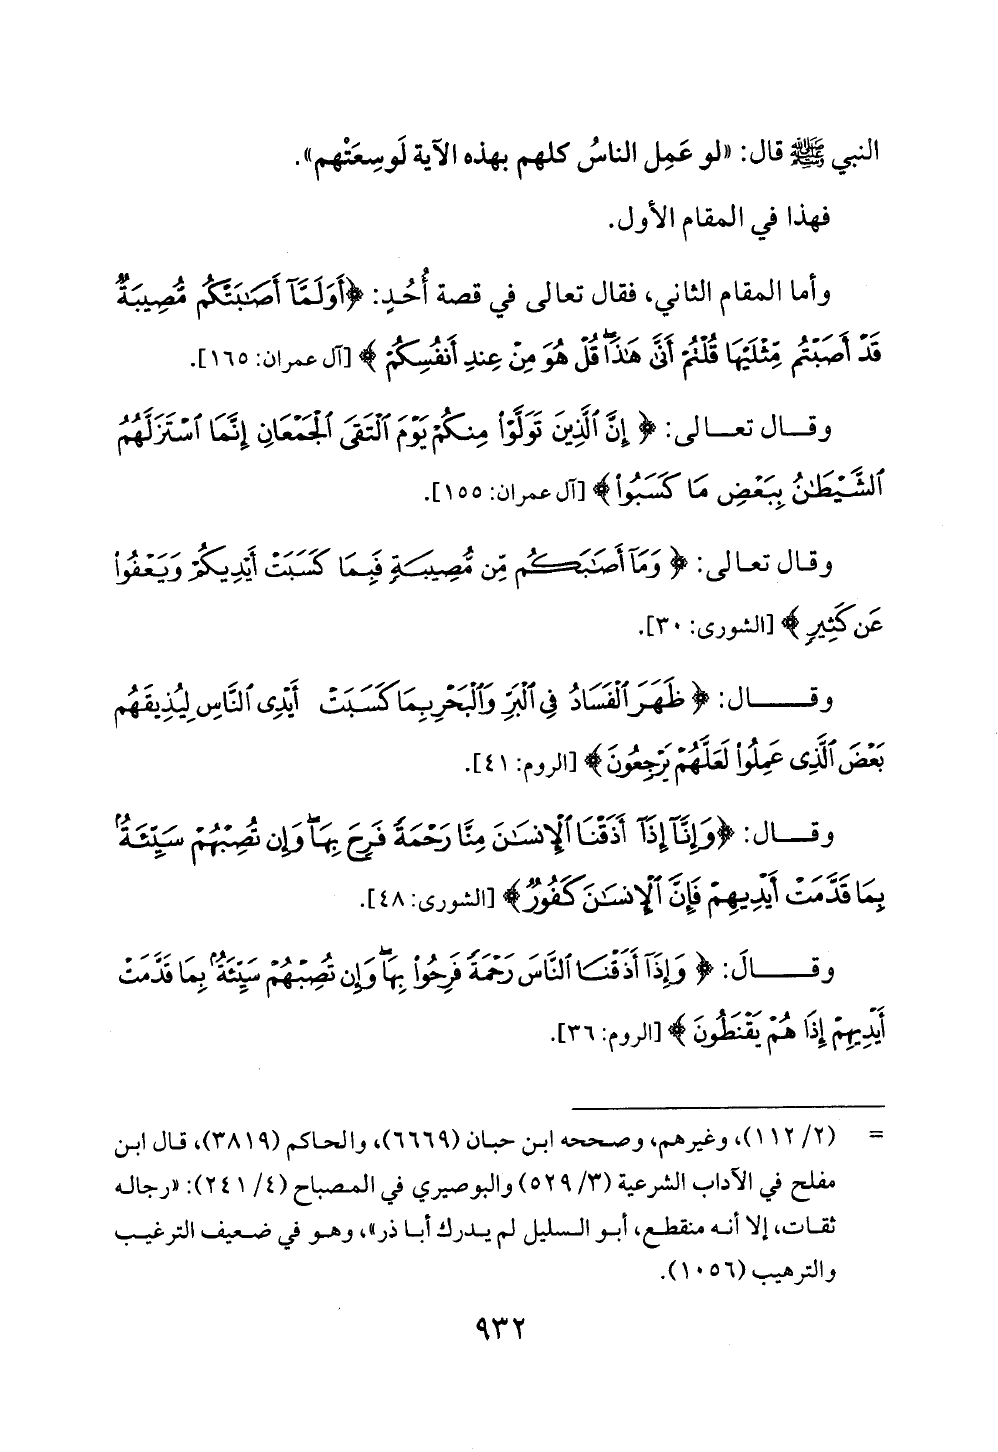 النبي ﷺ قال: «لو عَمِل الناسُ كلهم بهذه الآية لَوسِعَتْهم».
فهذا في المقام الأول.
وأما المقام الثاني، فقال تعالى في قصة أُحُدٍ: ﴿أَوَلَمَّآ أَصَٰبَتْكُم مُّصِيبَةٌ
قَدْ أَصَبْتُم مِّثْلَيْهَا قُلْتُمْ أَنَّىٰ هَٰذَا ۖ قُلْ هُوَ مِنْ عِندِ أَنفُسِكُمْ﴾ [آل عمران: ١٦٥].
وقال تعالى: ﴿إِنَّ ٱلَّذِينَ تَوَلَّوْا۟ مِنكُمْ يَوْمَ ٱلْتَقَى ٱلْجَمْعَانِ إِنَّمَا ٱسْتَزَلَّهُمُ
ٱلشَّيْطَٰنُ بِبَعْضِ مَا كَسَبُوا۟﴾ [آل عمران: ١٥٥].
وقال تعالى: ﴿وَمَآ أَصَٰبَكُم مِّن مُّصِيبَةٍ فَبِمَا كَسَبَتْ أَيْدِيكُمْ وَيَعْفُوا۟
عَن كَثِيرٍ﴾ [الشورى: ٣٠].
وقال: ﴿ظَهَرَ ٱلْفَسَادُ فِى ٱلْبَرِّ وَٱلْبَحْرِ بِمَا كَسَبَتْ أَيْدِى ٱلنَّاسِ لِيُذِيقَهُم
بَعْضَ ٱلَّذِى عَمِلُوا۟ لَعَلَّهُمْ يَرْجِعُونَ﴾ [الروم: ٤١].
وقال: ﴿وَإِنَّآ إِذَآ أَذَقْنَا ٱلْإِنسَٰنَ مِنَّا رَحْمَةً فَرِحَ بِهَا ۖ وَإِن تُصِبْهُمْ سَيِّئَةٌۢ
بِمَا قَدَّمَتْ أَيْدِيهِمْ فَإِنَّ ٱلْإِنسَٰنَ كَفُورٌ﴾ [الشورى: ٤٨].
وقالَ: ﴿وَإِذَآ أَذَقْنَا ٱلنَّاسَ رَحْمَةً فَرِحُوا۟ بِهَا ۖ وَإِن تُصِبْهُمْ سَيِّئَةٌۢ بِمَا قَدَّمَتْ
أَيْدِيهِمْ إِذَا هُمْ يَقْنَطُونَ﴾ [الروم: ٣٦].
= (٢/ ١١٢)، وغيرهم، وصححه ابن حبان (٦٦٦٩)، والحاكم (٣٨١٩)، قال ابن
مفلح في الآداب الشرعية (٣/ ٥٢٩) والبوصيري في المصباح (٤/ ٢٤١): «رجاله
ثقات، إلا أنه منقطع، أبو السليل لم يدرك أبا ذر»، وهو في ضعيف الترغيب
والترهيب (١٠٥٦).
٩٣٢